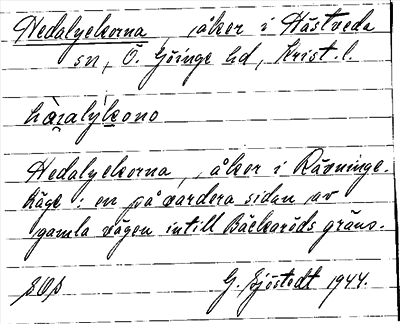 Hedalyckorna, åker i Hästveda
sn, Ö. Göinge hd, Krist. l.
Hedalyckorna, åker i Rävninge-
häge: en på vardera sidan av
gamla vägen intill Bäckaröds gräns.
G. Sjöstedt 1944.